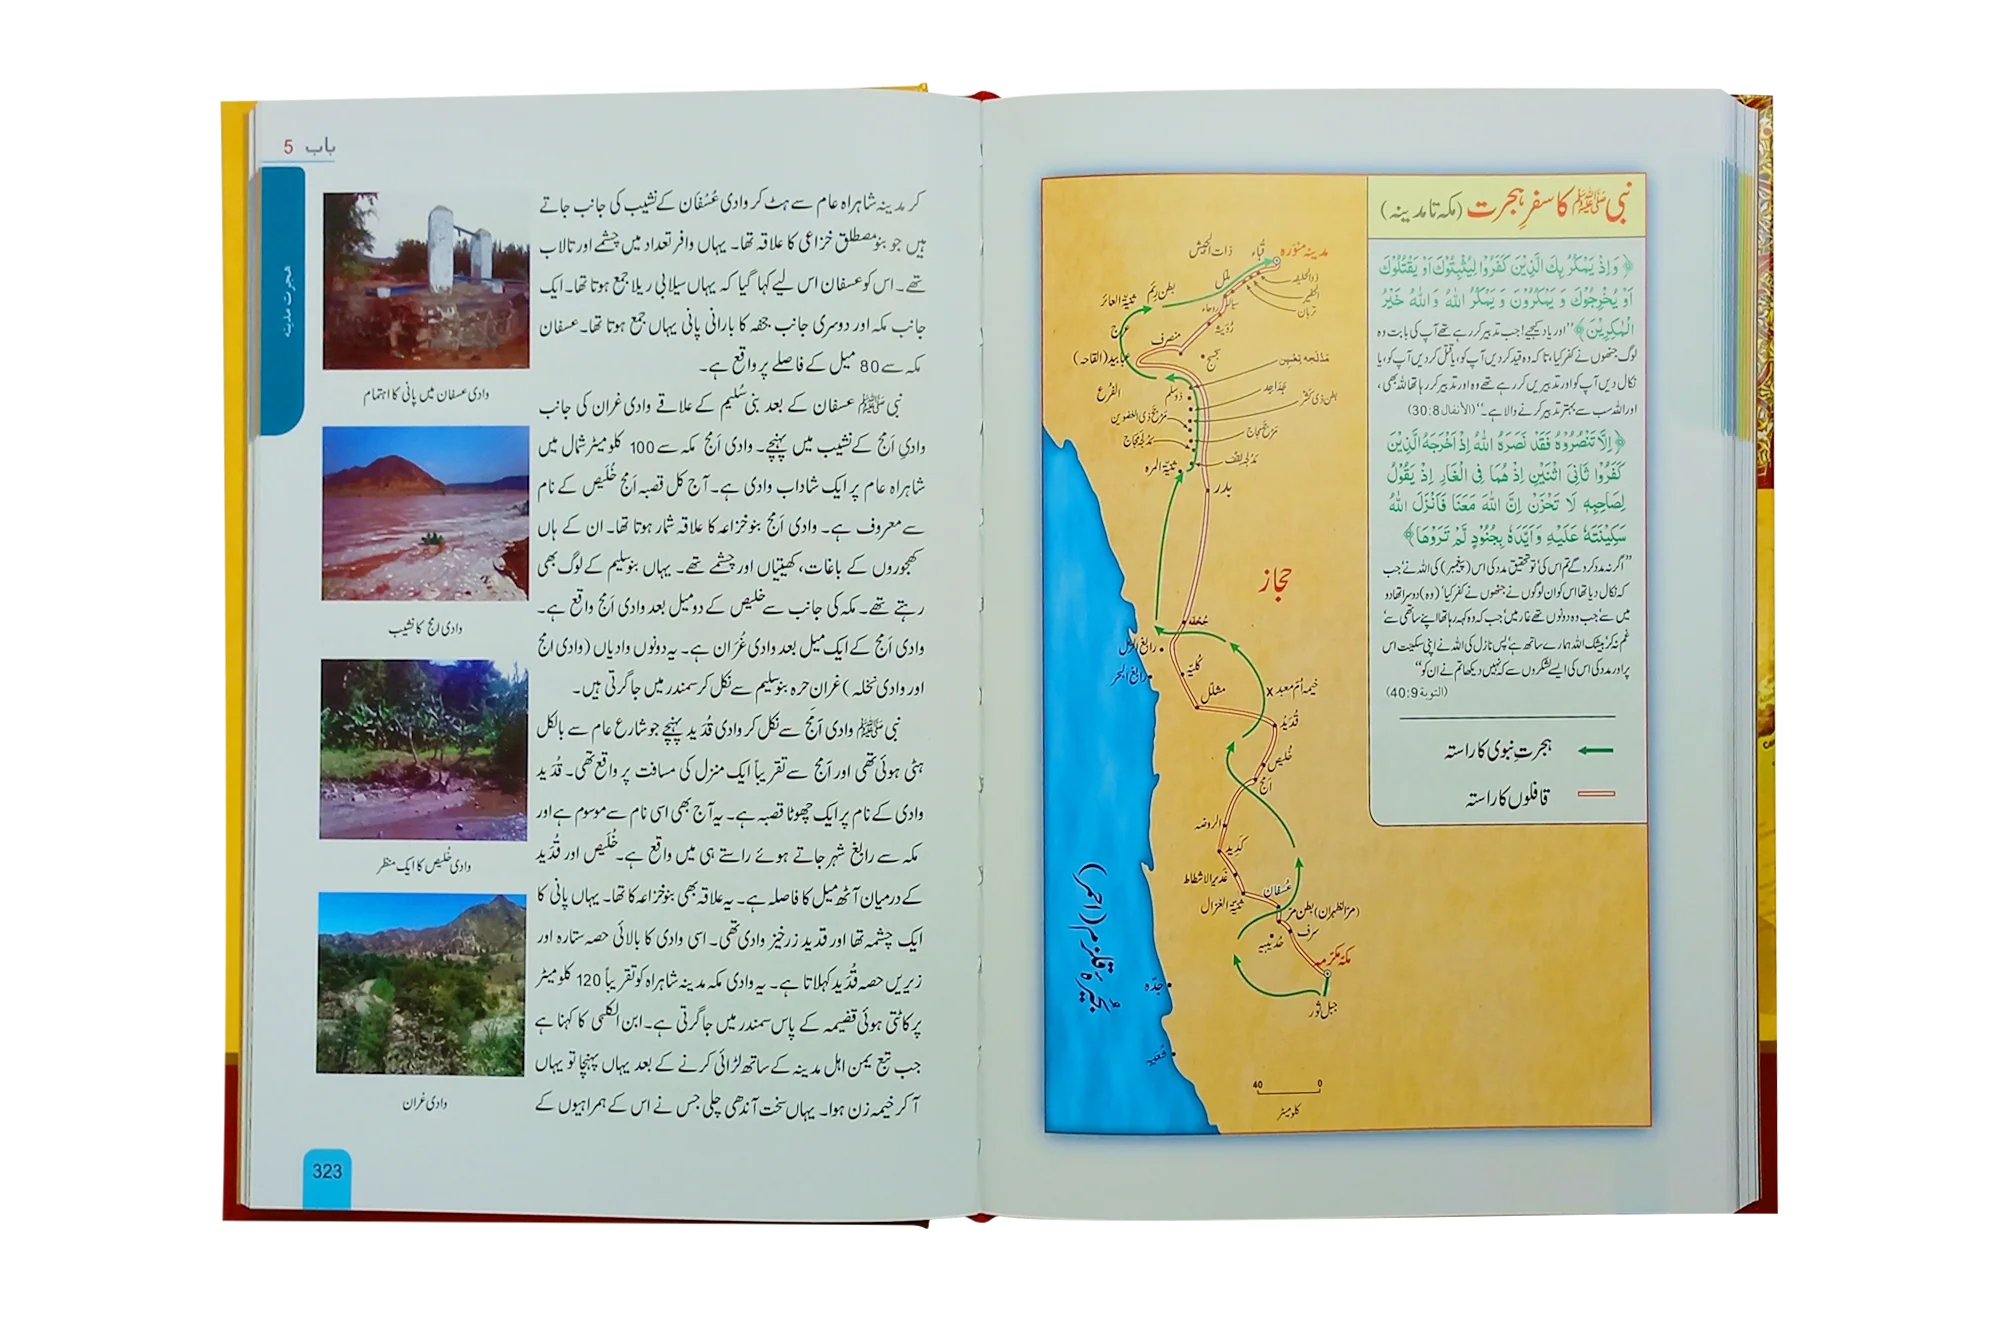 نبی ﷺ کا سفرِ ہجرت (مکہ تا مدینہ)
﴿ وَاِذْ يَمْكُرُ بِكَ الَّذِيْنَ كَفَرُوْا لِيُثْبِتُوْكَ اَوْ يَقْتُلُوْكَ
اَوْ يُخْرِجُوْكَ وَ يَمْكُرُوْنَ وَ يَمْكُرُ اللّٰهُ وَ اللّٰهُ خَيْرُ
الْمٰكِرِيْنَ﴾ ’’اور یاد کیجیے! جب تدبیر کر رہے تھے آپ کی بابت وہ
لوگ جنھوں نے کفر کیا، تاکہ وہ قید کر دیں آپ کو، یا قتل کر دیں آپ کو، یا
نکال دیں آپ کو اور تدبیریں کر رہے تھے وہ اور تدبیر کر رہا تھا اللہ بھی،
اور اللہ سب سے بہتر تدبیر کرنے والا ہے۔‘‘ (الأنفال 30:8)
﴿ اِلَّا تَنْصُرُوْهُ فَقَدْ نَصَرَهُ اللّٰهُ اِذْ اَخْرَجَهُ الَّذِيْنَ
كَفَرُوْا ثَانِيَ اثْنَيْنِ اِذْ هُمَا فِي الْغَارِ اِذْ يَقُوْلُ
لِصَاحِبِهٖ لَا تَحْزَنْ اِنَّ اللّٰهَ مَعَنَا فَاَنْزَلَ اللّٰهُ
سَكِيْنَتَهٗ عَلَيْهِ وَ اَيَّدَهٗ بِجُنُوْدٍ لَّمْ تَرَوْهَا﴾
’’اگر نہ مدد کرو گے تم اس کی‘ تو تحقیق مدد کی اس (پیغمبر) کی اللہ نے‘ جب
کہ نکال دیا تھا اس کو ان لوگوں نے جنھوں نے کفر کیا‘ (وہ) دوسرا تھا دو
میں سے‘ جب وہ دونوں تھے غار میں‘ جب کہ وہ کہہ رہا تھا اپنے ساتھی سے‘
غم نہ کر‘ بیشک اللہ ہمارے ساتھ ہے‘ پس نازل کی اللہ نے اپنی سکینت اس
پر اور مدد کی اس کی ایسے لشکروں سے کہ نہیں دیکھا تم نے ان کو‘‘
(التوبة 40:9)
ہجرتِ نبوی کا راستہ
قافلوں کا راستہ
مدینہ منورہ
قُباء
ذات الجیش
ذوالحلیفہ
ملل
تربان
سیالہ
روحاء
بطن رِئم
ثنیۃ العائر
عرج
منصرف
(القاحہ)
الفرع
ذوسلم
بطن ذی کشر
ثنیۃ المرہ
مدلجہ لقف
بدر
حجاز
جحفہ
رابغ البحر
کلیہ
مشلل
خیمہ اُمّ معبد x
قُدَید
خُلیص
اَمَج
الروضہ
کَدِید
غدیر الاشطاط
عُسفان
ثنیۃ الغزال
(مرّ الظہران) بطن مر
سرف
حُدَیبیہ
مکہ مکرمہ
جبل ثور
جدّہ
بُحَیرہ قلزم (احمر)
40 0
کلومیٹر
باب 5
ہجرت مدینہ
کر مدینہ شاہراہ عام سے ہٹ کر وادی عُسْفَان کے نشیب کی جانب جاتے
ہیں جو بنو مصطلق خزاعی کا علاقہ تھا۔ یہاں وافر تعداد میں چشمے اور تالاب
تھے۔ اس کو عسفان اس لیے کہا گیا کہ یہاں سیلابی ریلا جمع ہوتا تھا۔ ایک
جانب مکہ اور دوسری جانب جحفہ کا بارانی پانی یہاں جمع ہوتا تھا۔ عسفان
مکہ سے 80 میل کے فاصلے پر واقع ہے۔
نبی ﷺ عسفان کے بعد بنی سُلیم کے علاقے وادی غران کی جانب
وادیِ اَمَج کے نشیب میں پہنچے۔ وادی اَمَج مکہ سے 100 کلومیٹر شمال میں
شاہراہ عام پر ایک شاداب وادی ہے۔ آج کل قصبہ اَمَج خُلَیص کے نام
سے معروف ہے۔ وادی اَمَج بنو خزاعہ کا علاقہ شمار ہوتا تھا۔ ان کے ہاں
کھجوروں کے باغات، کھیتیاں اور چشمے تھے۔ یہاں بنو سلیم کے لوگ بھی
رہتے تھے۔ مکہ کی جانب سے خلیص کے دو میل بعد وادی اَمَج واقع ہے۔
وادی اَمَج کے ایک میل بعد وادی غُرَان ہے۔ یہ دونوں وادیاں (وادی امج
اور وادی نخلہ) غران حرہ بنو سلیم سے نکل کر سمندر میں جا گرتی ہیں۔
نبی ﷺ وادی اَمَج سے نکل کر وادی قُدَید پہنچے جو شارع عام سے بالکل
ہٹی ہوئی تھی اور اَمَج سے تقریباً ایک منزل کی مسافت پر واقع تھی۔ قُدَید
وادی کے نام پر ایک چھوٹا قصبہ ہے۔ یہ آج بھی اسی نام سے موسوم ہے اور
مکہ سے رابغ شہر جاتے ہوئے راستے ہی میں واقع ہے۔ خُلَیص اور قُدَید
کے درمیان آٹھ میل کا فاصلہ ہے۔ یہ علاقہ بھی بنو خزاعہ کا تھا۔ یہاں پانی کا
ایک چشمہ تھا اور قدید زرخیز وادی تھی۔ اسی وادی کا بالائی حصہ ستارہ اور
زیریں حصہ قُدَید کہلاتا ہے۔ یہ وادی مکہ مدینہ شاہراہ کو تقریباً 120 کلومیٹر
پر کاٹتی ہوئی قضیمہ کے پاس سمندر میں جا گرتی ہے۔ ابن الکلبی کا کہنا ہے
جب تبع یمن اہل مدینہ کے ساتھ لڑائی کرنے کے بعد یہاں پہنچا تو یہاں
آ کر خیمہ زن ہوا۔ یہاں سخت آندھی چلی جس نے اس کے ہمراہیوں کے
وادی عسفان میں پانی کا اہتمام
وادی امج کا نشیب
وادی خُلیص کا ایک منظر
وادی غران
323